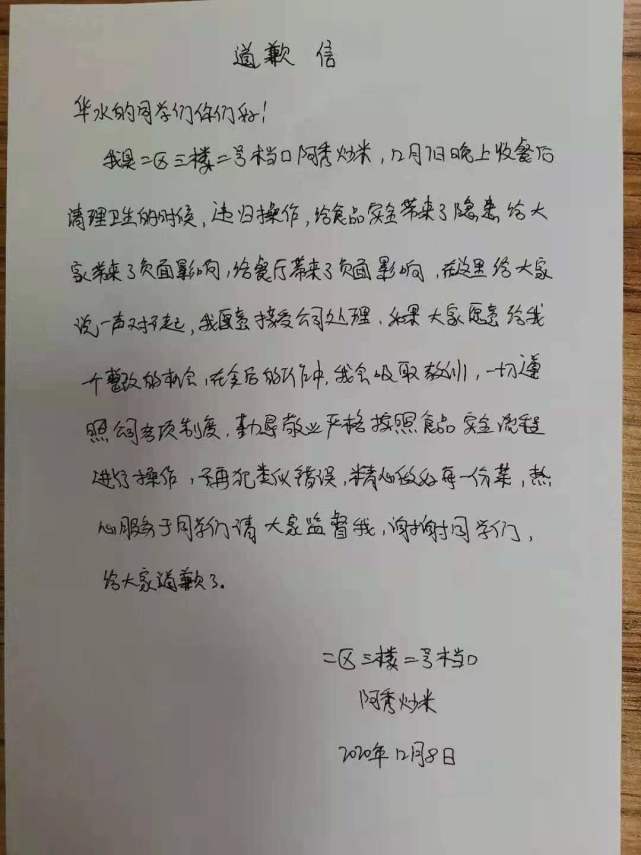 道歉 信
华水的同学们你们好！
我是二区三楼二号档口阿秀炒米，12月7日晚上收餐后
清理卫生的时候，违归操作，给食品安全带来了隐患给大
家带来了负面影响，给餐厅带来了负面影响，在这里给大家
说一声对不起，我愿意接受公司处理，如果大家愿意给我
个整改的机会，在今后的工作中，我会吸取教训，一切遵
照公司各项制度，勤勤敬业严格按照食品安全流程
进行操作，不再犯类似错误，精心做好每一份菜，热
心服务于同学们请大家监督我，谢谢同学们，
给大家道歉了。
二区三楼二号档口
阿秀炒米
2020年12月8日